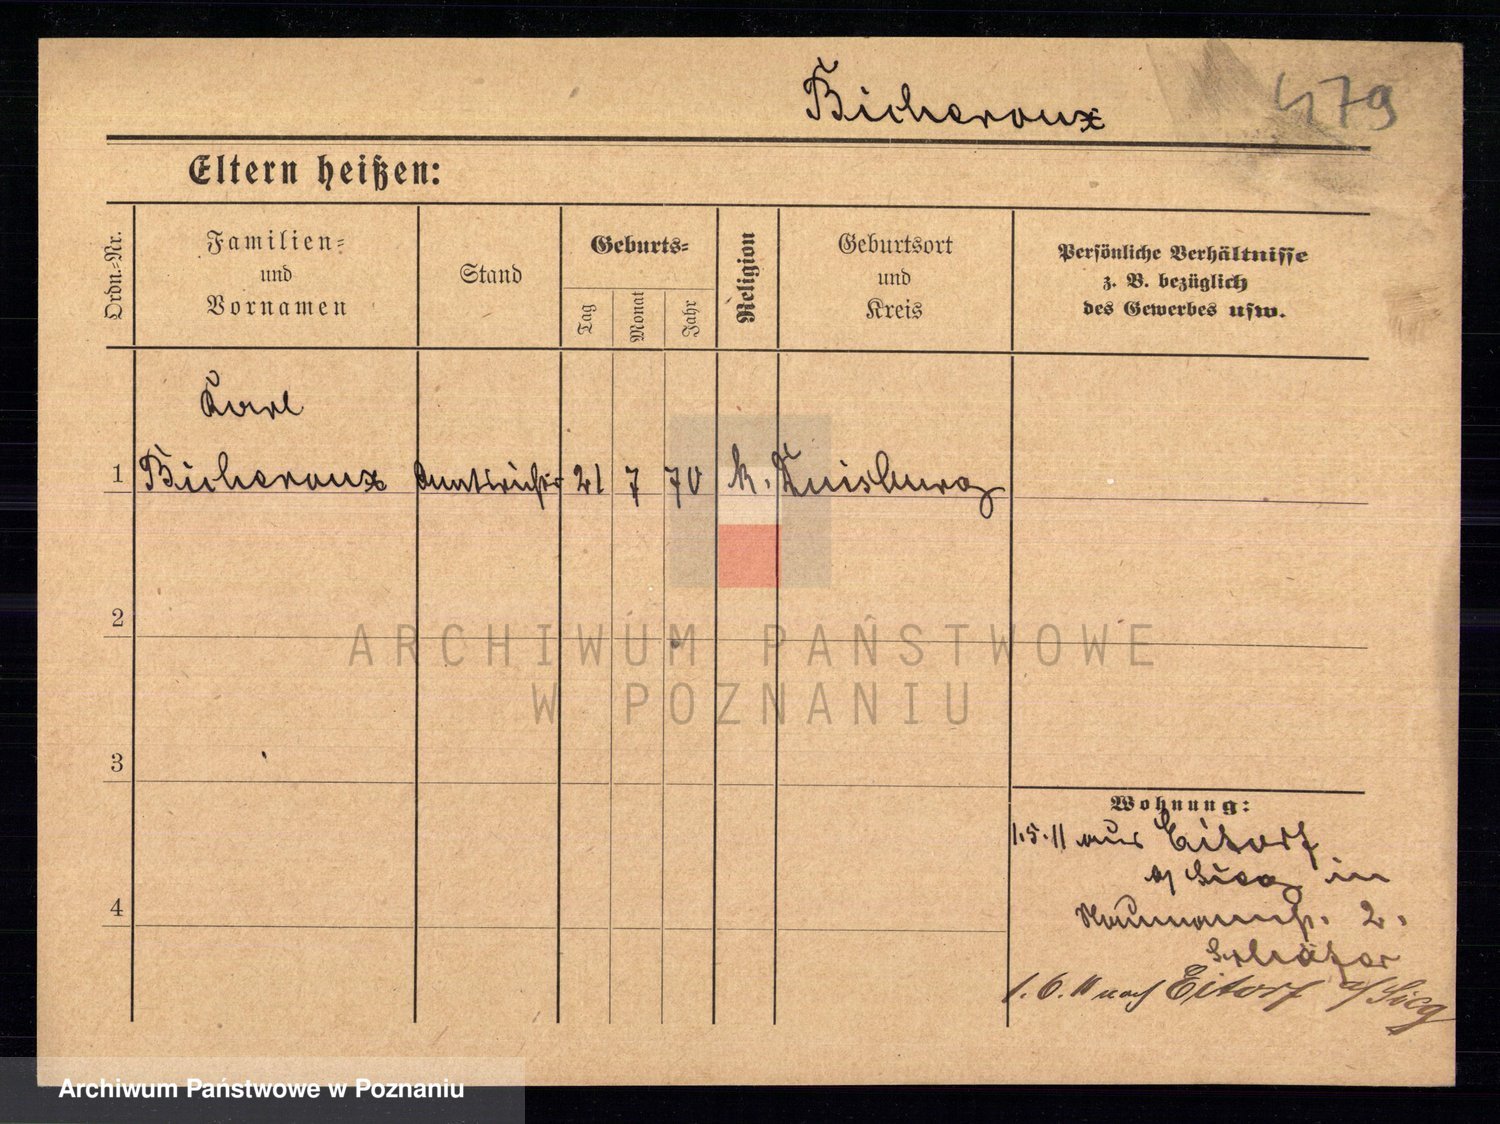 Bicheroux
479
Eltern heißen:
Ordn.-Nr.
Familien-
und
Vornamen
Stand
Geburts-
Tag
Monat
Jahr
Religion
Geburtsort
und
Kreis
Persönliche Verhältnisse
z. B. bezüglich
des Gewerbes usw.
Karl
1 Bicheroux Amtsricht. 21 7 70 k. Duisburg
2
3
4
Wohnung:
1.5.11 aus Eitorf
a/ Sieg in
Naumannstr. 2.
1.6.11 nach Eitorf a/ Sieg
ARCHIWUM PAŃSTWOWE
W POZNANIU
Archiwum Państwowe w Poznaniu